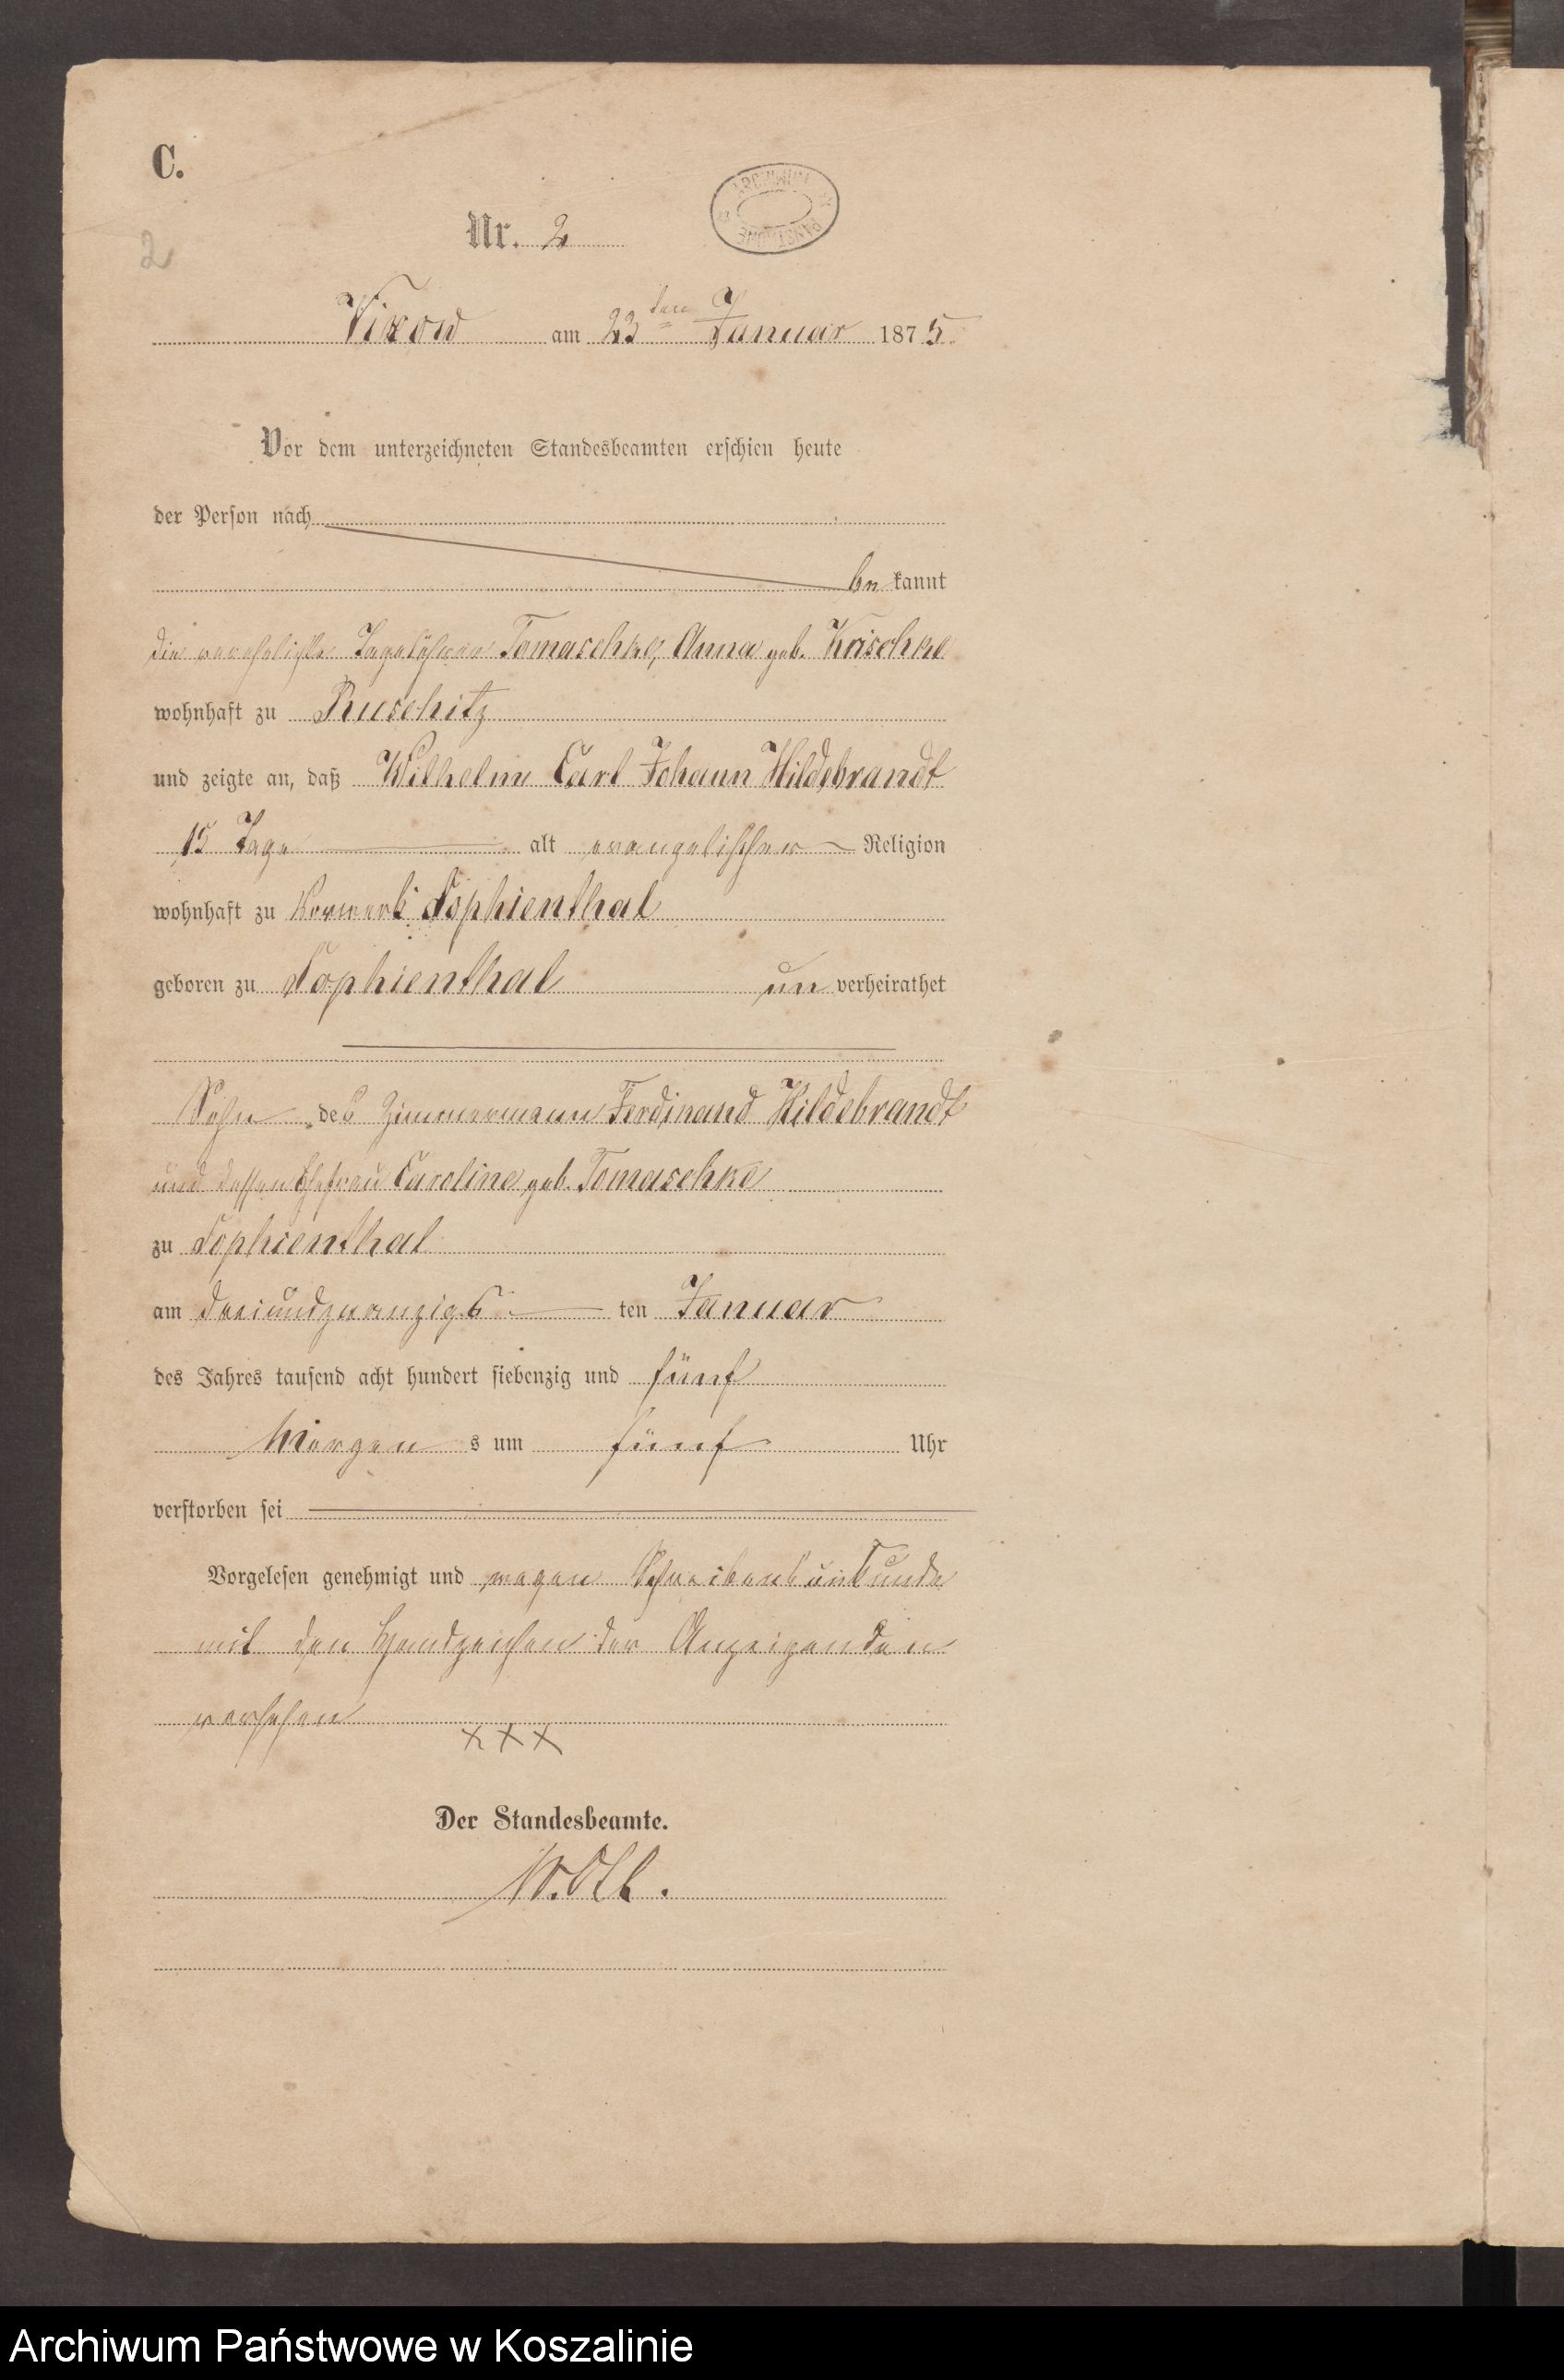 C.
2
Nr. 2
ARCHIWUM PAŃSTWOWE
Vixow am 23ten Januar 1875.
Vor dem unterzeichneten Standesbeamten erschien heute
der Person nach
bekannt
die verehelichte Tagelöhner Tomaschke, Anna geb. Krischke
wohnhaft zu Ruschitz
und zeigte an, daß Wilhelm Carl Johann Hildebrandt
15 Tage alt evangelischer Religion
wohnhaft zu Vorwerk Sophienthal
geboren zu Sophienthal un verheirathet
Sohn des Zimmermann Ferdinand Hildebrandt
und dessen Ehefrau Caroline geb. Tomaschke
zu Sophienthal
am dreiundzwanzigs ten Januar
des Jahres tausend acht hundert siebenzig und fünf
Morgen s um fünf Uhr
verstorben sei
Vorgelesen genehmigt und wegen Schreibensunkunde
mit den Handzeichen der Anzeigenden
versehen
XXX
Der Standesbeamte.
Archiwum Państwowe w Koszalinie